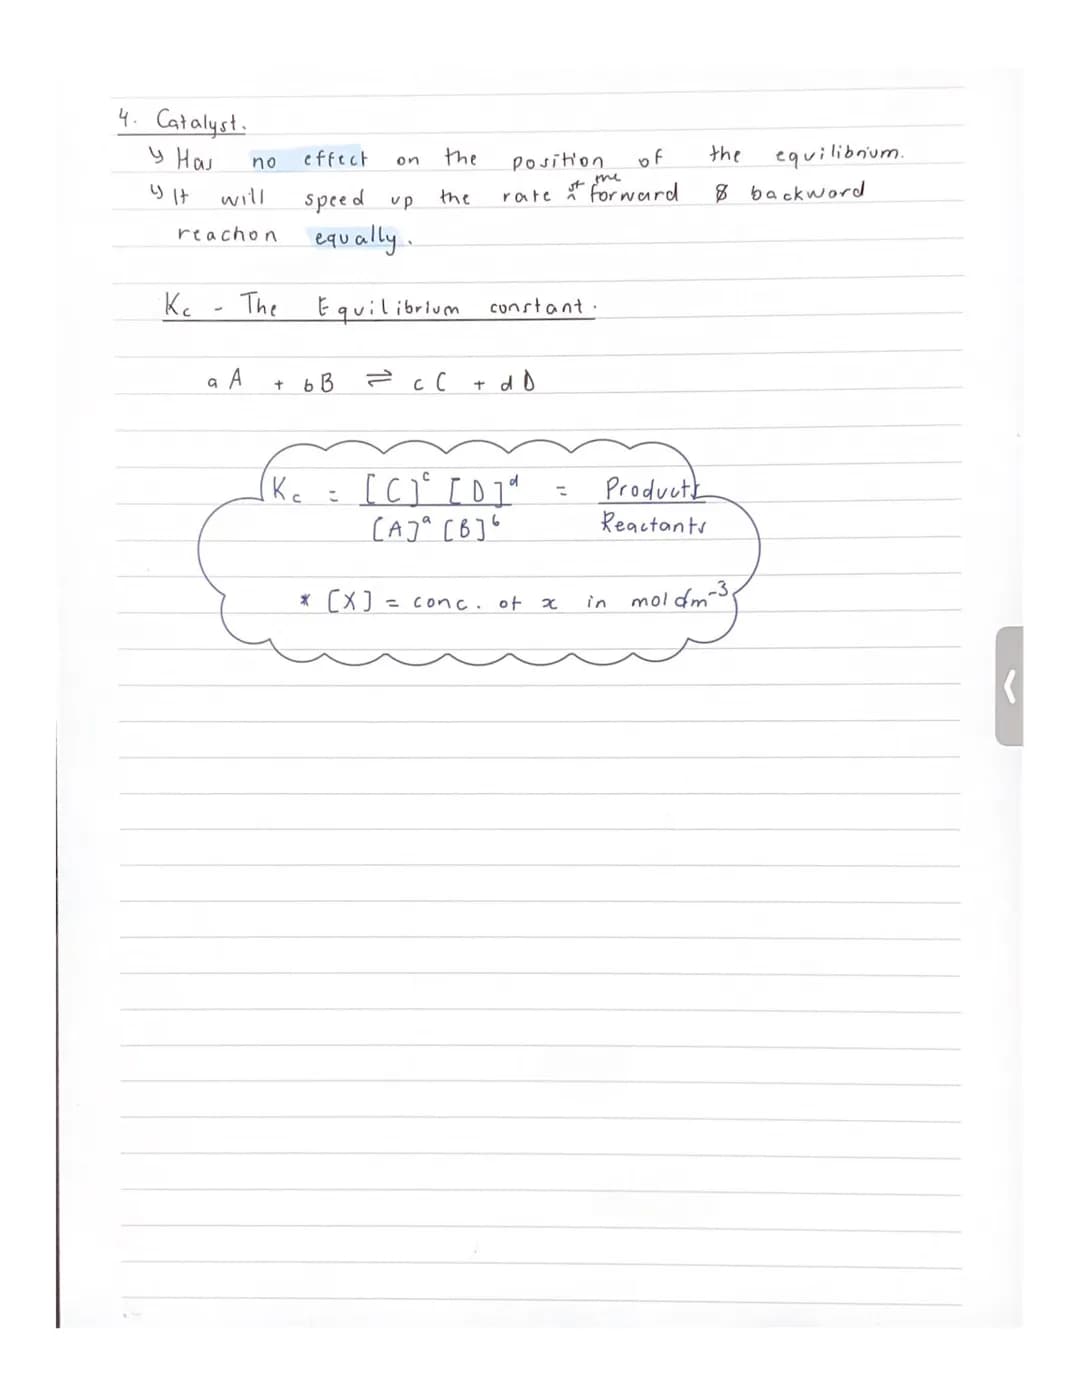 4. Catalyst.
↳ Has no effect on the position of the equilibrium.
↳ It will speed up the rate of the forward & backward
reaction equally.
Kc - The Equilibrium constant.
aA + bB ⇌ cC + dD
Kc = [C]ᶜ [D]ᵈ = Products
[A]ᵃ [B]ᵇ Reactants
* [X] = conc. of x in mol dm⁻³